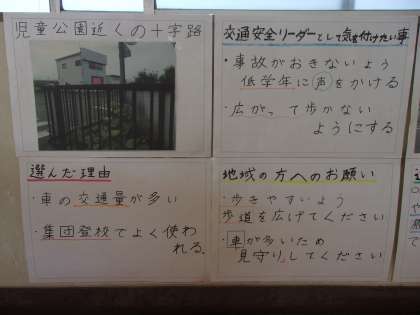 児童公園近くの十字路
交通安全リーダーとして気を付けたい事
・事故がおきないよう
低学年に声をかける
・広がって歩かない
ようにする
選んだ理由
・車の交通量が多い
・集団登校でよく使わ
れる。
地域の方へのお願い
・歩きやすいよう
歩道を広げてください
・車が多いため
見守りしてください